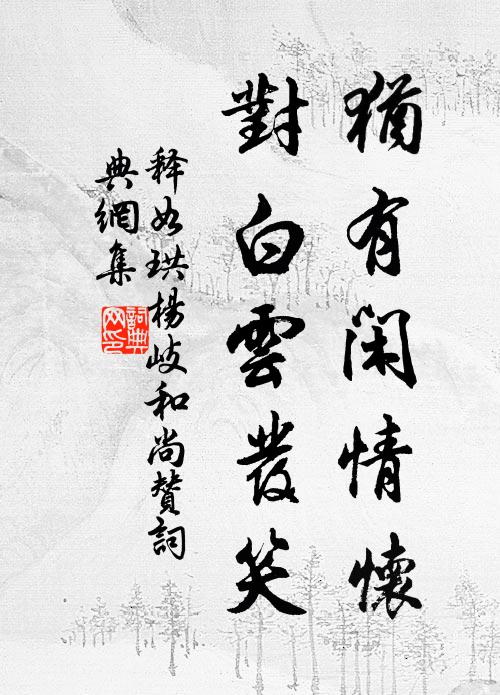 猶有閑情懷
對白雲發笑
释如珙楊岐和尚贊詞
典網集
詞典网印